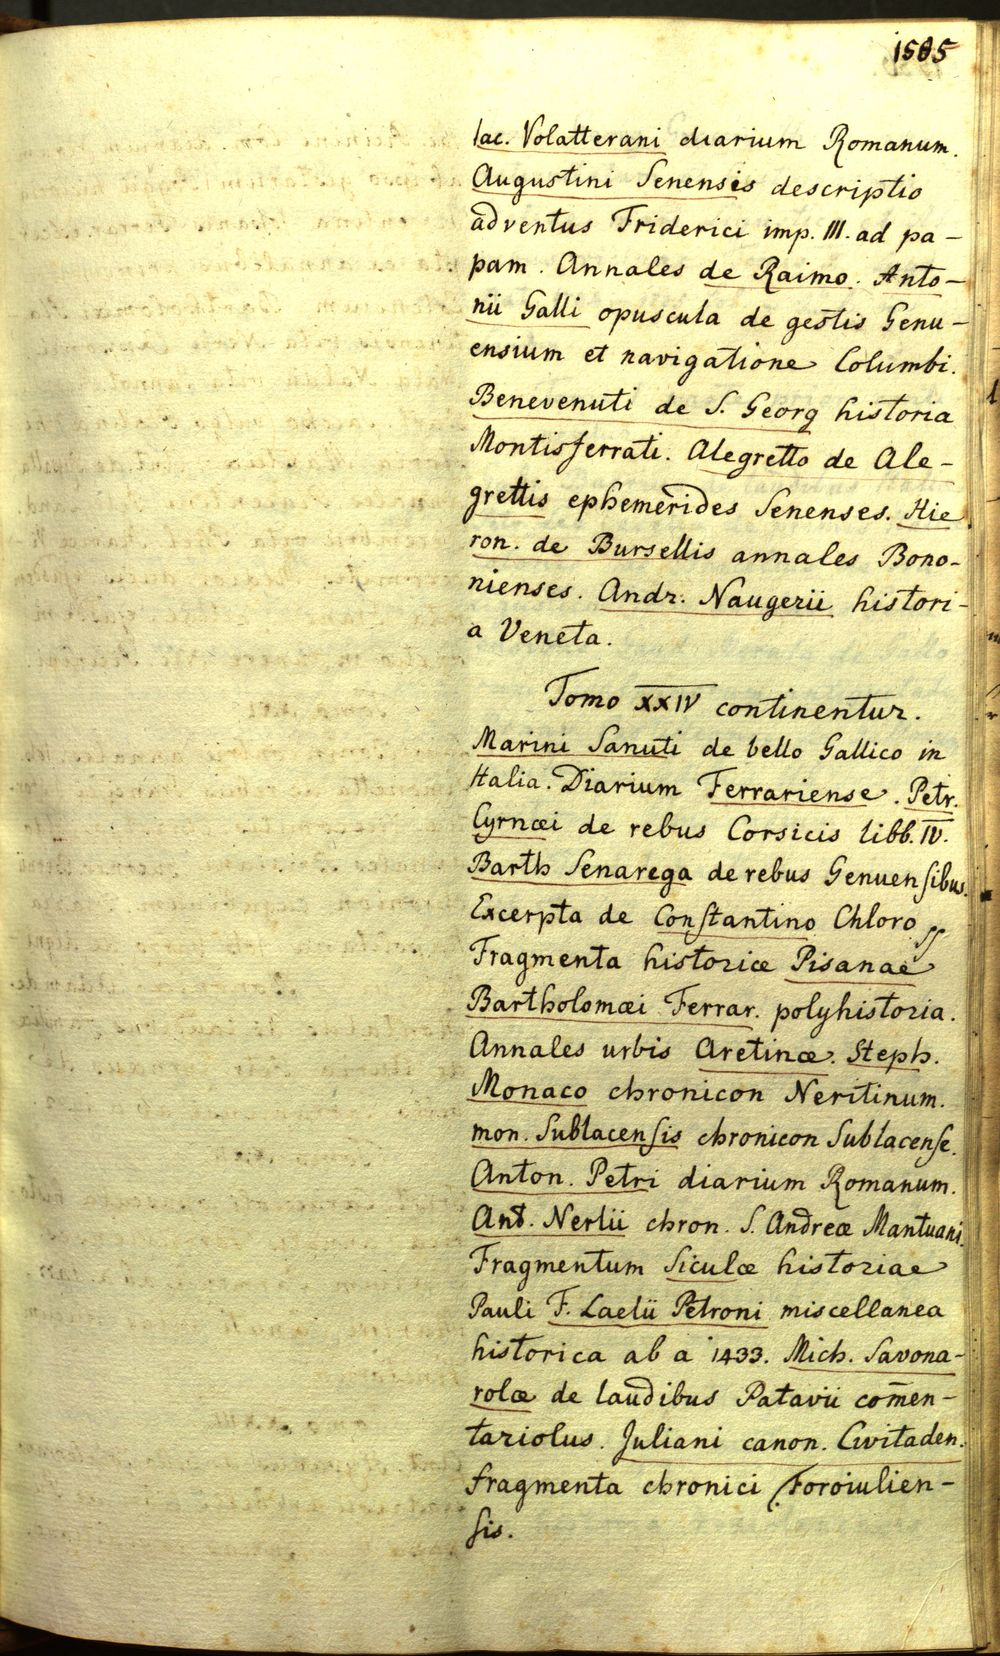 1585
Iac. Volatterani diarium Romanum.
Augustini Senensis descriptio
adventus Friderici imp. III. ad pa-
pam. Annales de Raimo. Anto-
nii Galli opuscula de gestis Genu-
ensium et navigatione Columbi.
Benevenuti de S. Georg historia
Montisferrati. Alegretto de Ale-
grettis ephemerides Senenses. Hie
ron. de Bursellis annales Bono-
nienses. Andr. Naugerii histori-
a Veneta.
Tomo XXIV continentur.
Marini Sanuti de bello Gallico in
Italia. Diarium Ferrariense. Petr.
Cyrnæi de rebus Corsicis libb. IV.
Barth Senarega de rebus Genuensibus.
Excerpta de Constantino Chloro
Fragmenta historiæ Pisanae
Bartholomæi Ferrar. polyhistoria.
Annales urbis Aretinæ. Steph.
Monaco chronicon Neritinum.
mon. Sublacensis chronicon Sublacense.
Anton. Petri diarium Romanum.
Ant. Nerlii chron. S. Andreæ Mantuani.
Fragmentum Siculæ historiae
Pauli F. Laelii Petroni miscellanea
historica ab a 1433. Mich. Savona-
rolæ de laudibus Patavii com̄en-
tariolus. Juliani canon. Civitaden.
fragmenta chronici Foroiulien-
sis.